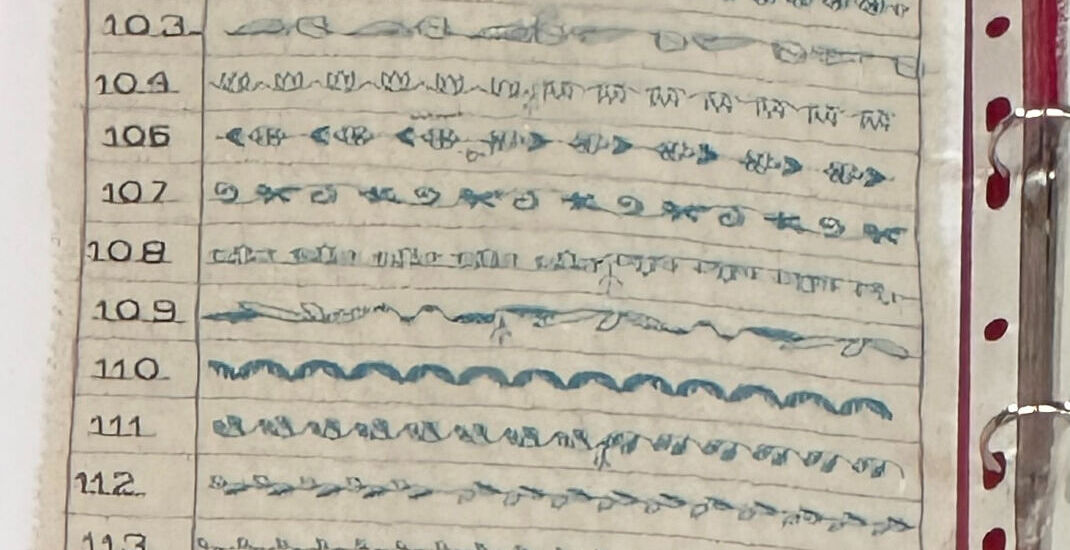 103
104
106
107
108
109
110
111
112
113